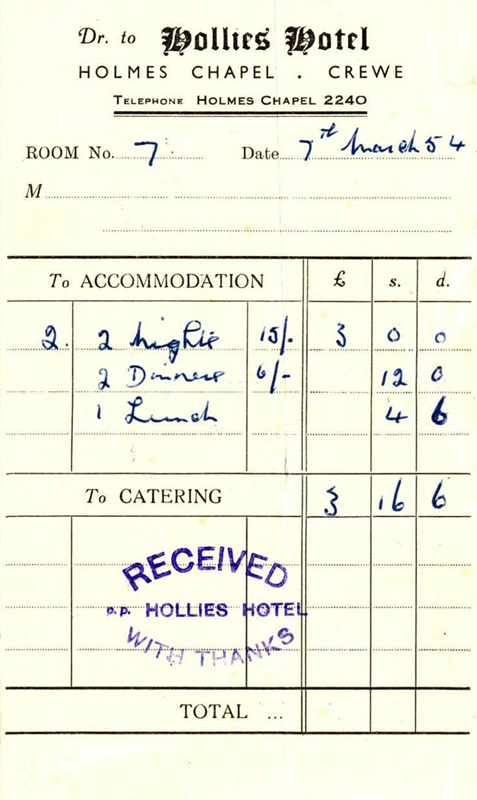 Dr. to Hollies Hotel
HOLMES CHAPEL . CREWE
TELEPHONE HOLMES CHAPEL 2240
ROOM No. 7 Date 7th March 54
M
To ACCOMMODATION £ s. d.
2. 2 Nights 15/- 3 0 0
2 Dinners 6/- 12 0
1 Lunch 4 6
To CATERING 3 16 6
RECEIVED
p.p. HOLLIES HOTEL
WITH THANKS
TOTAL ...